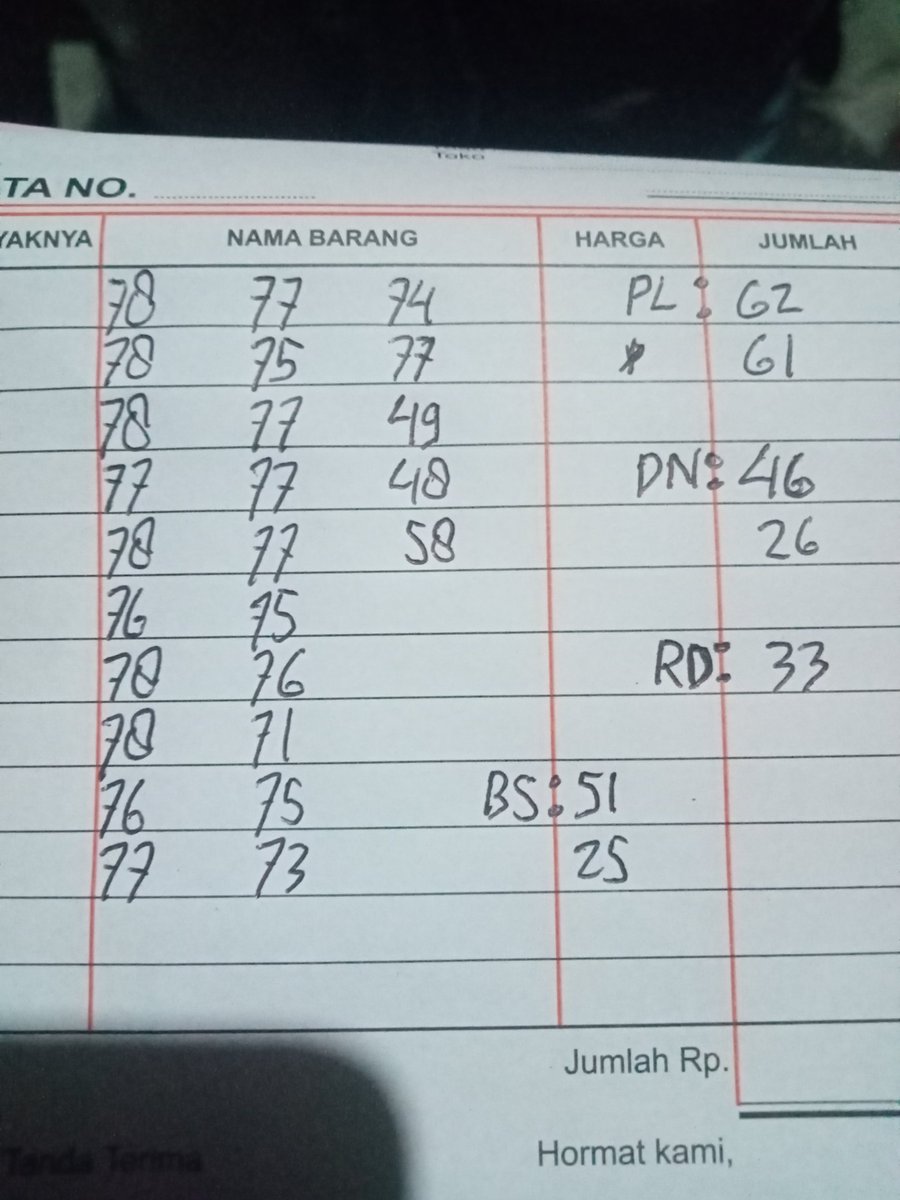 Toko
TA NO.
YAKNYA NAMA BARANG HARGA JUMLAH
78 77 74 PL: 62
78 75 77 61
78 77 49
77 77 48 DN: 46
78 77 58 26
76 75
78 76 RD: 33
78 71
76 75 BS: 51
77 73 25
Jumlah Rp.
Tanda Terima Hormat kami,